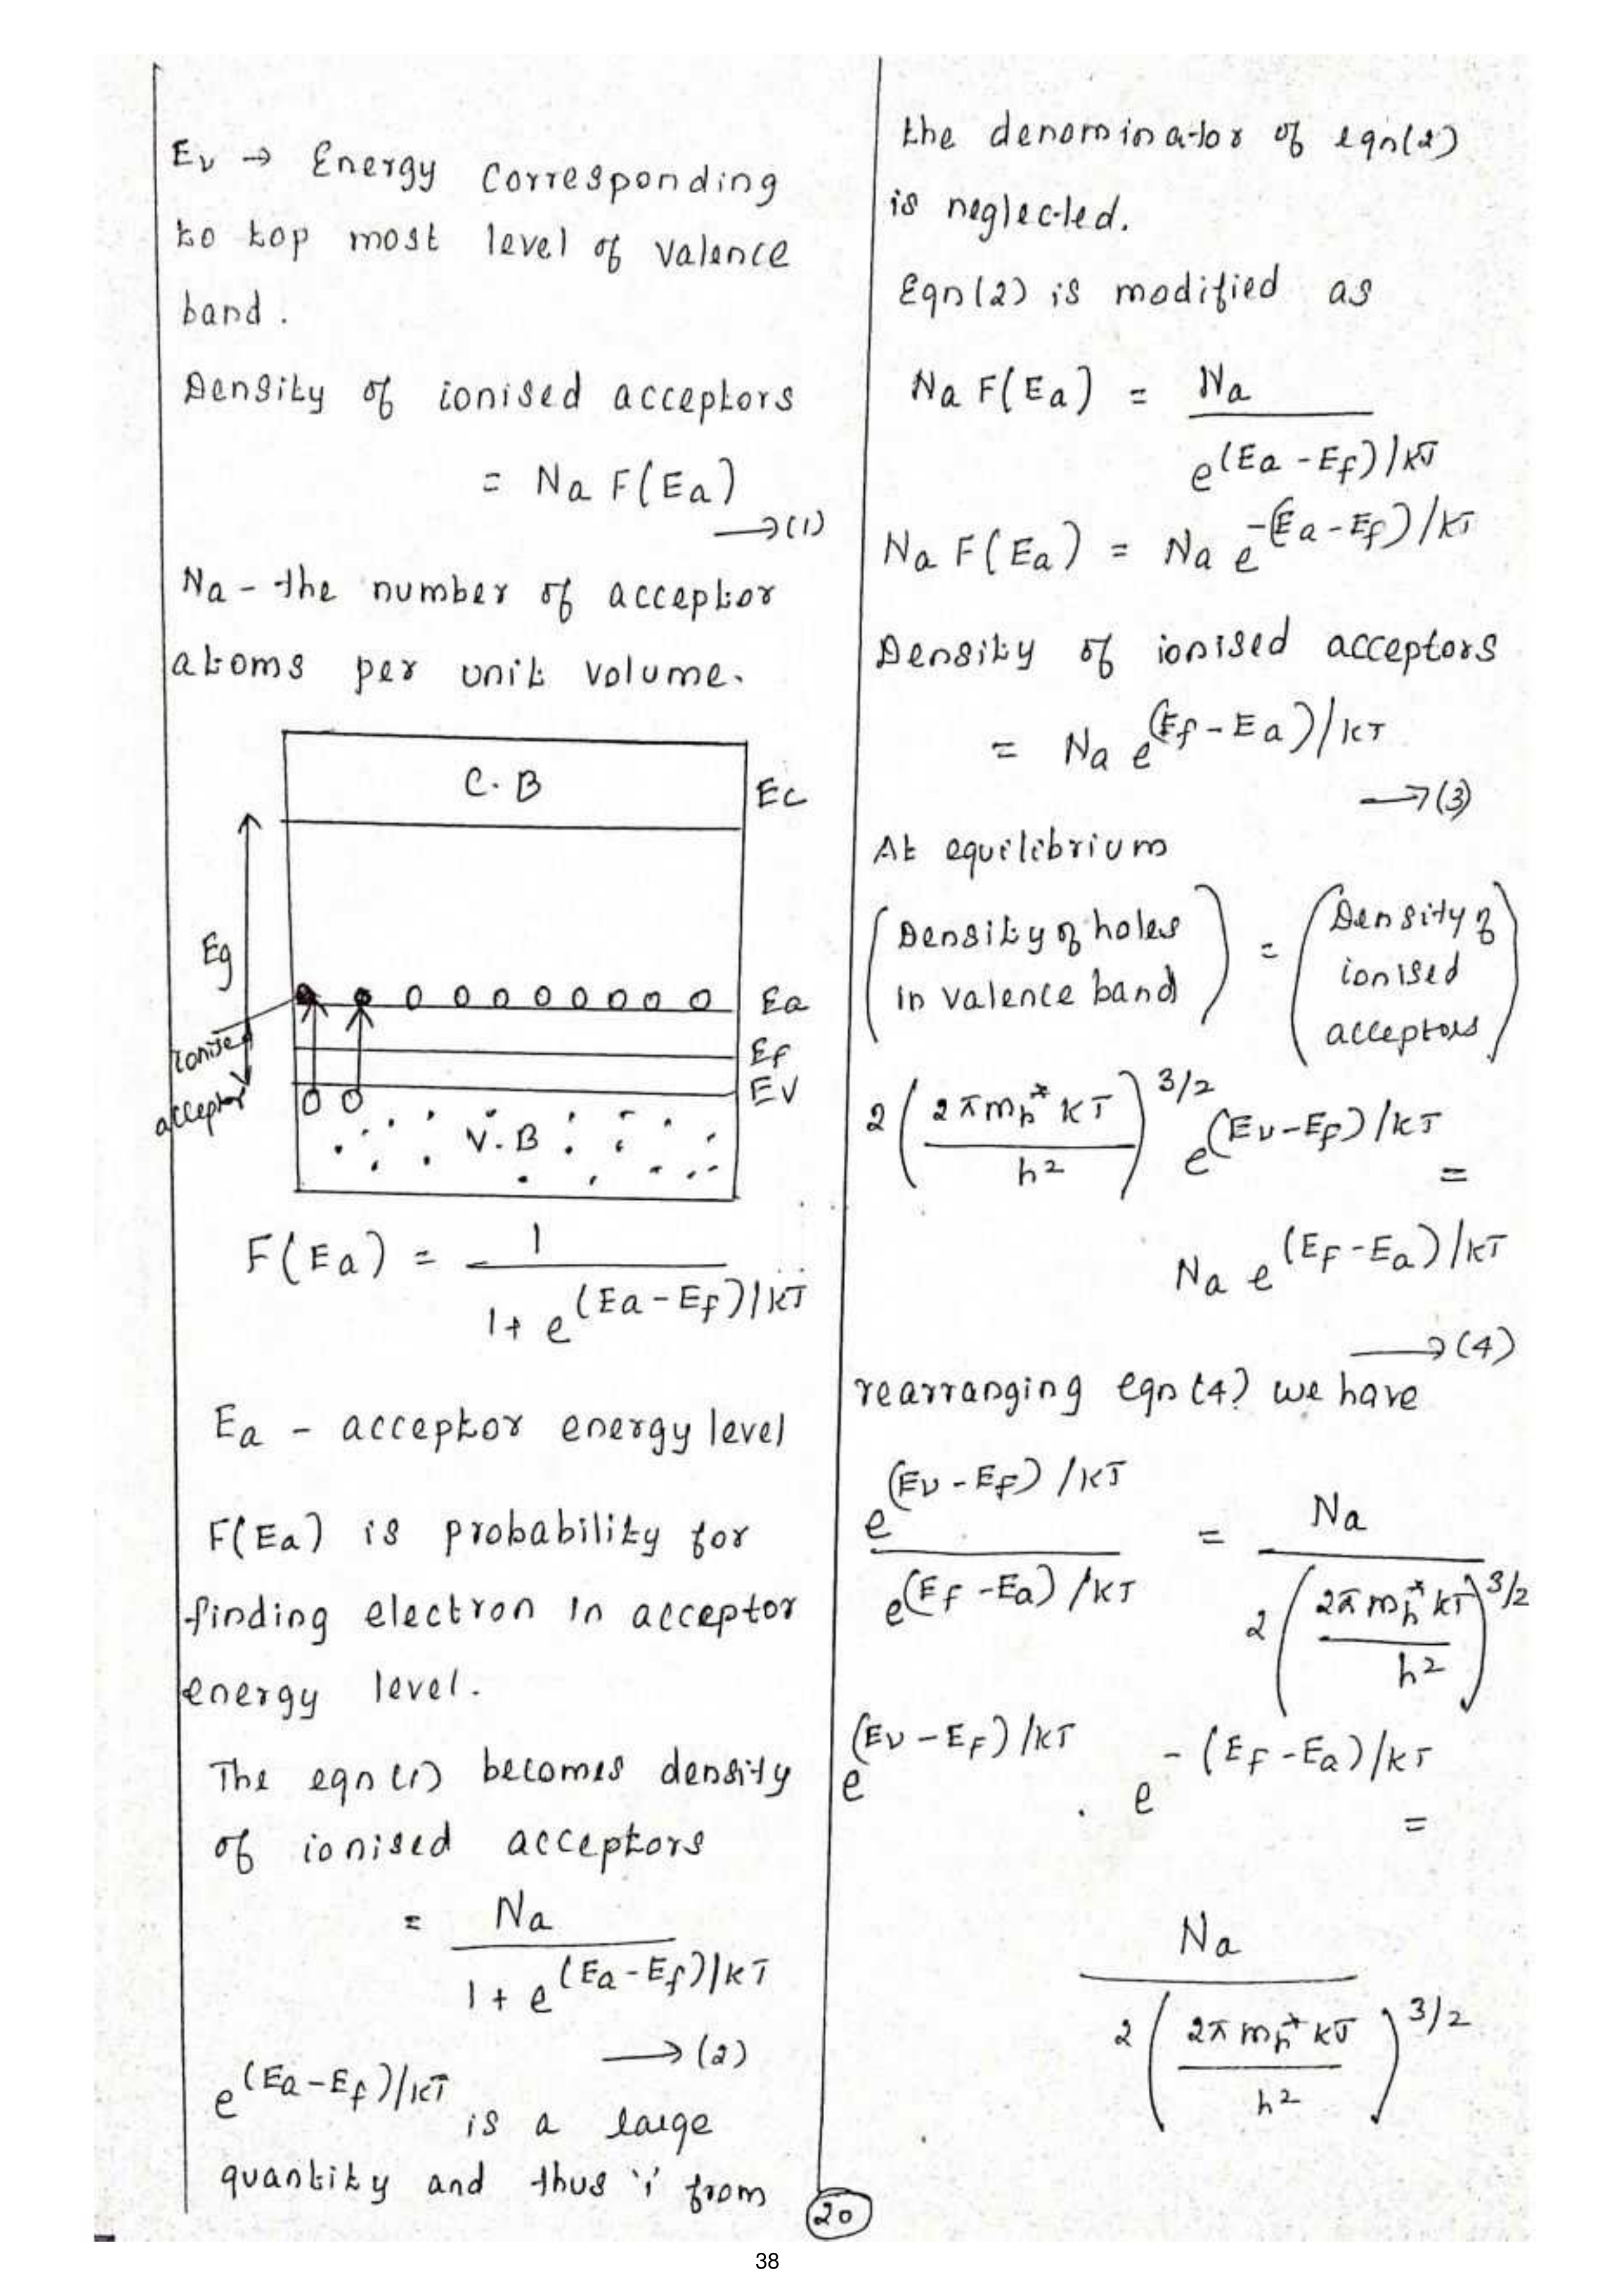 Ev → Energy corresponding
to top most level of valence
band.
Density of ionised acceptors
= Na F(Ea)
→(1)
Na - the number of acceptor
atoms per unit volume.
C.B
Ec
Eg
Ea
Ef
Ev
ionised
acceptor
V.B
F(Ea) = 1 / (1 + e^(Ea - Ef)/kT)
Ea - acceptor energy level
F(Ea) is probability for
finding electron in acceptor
energy level.
The eqn (1) becomes density
of ionised acceptors
= Na / (1 + e^(Ea - Ef)/kT)
→(2)
e^(Ea - Ef)/kT is a large
quantity and thus '1' from
the denominator of eqn(2)
is neglected.
Eqn(2) is modified as
Na F(Ea) = Na / e^(Ea - Ef)/kT
Na F(Ea) = Na e^-(Ea - Ef)/kT
Density of ionised acceptors
= Na e^(Ef - Ea)/kT
→(3)
At equilibrium
(Density of holes in valence band) = (Density of ionised acceptors)
2 (2πmh* kT / h²)^3/2 e^(Ev - Ef)/kT =
Na e^(EF - Ea)/kT
→(4)
rearranging eqn (4) we have
e^(Ev - EF)/kT / e^(EF - Ea)/kT = Na / 2 (2πmh* kT / h²)^3/2
e^(Ev - EF)/kT . e^-(EF - Ea)/kT =
Na / 2 (2πmh* kT / h²)^3/2
20
38